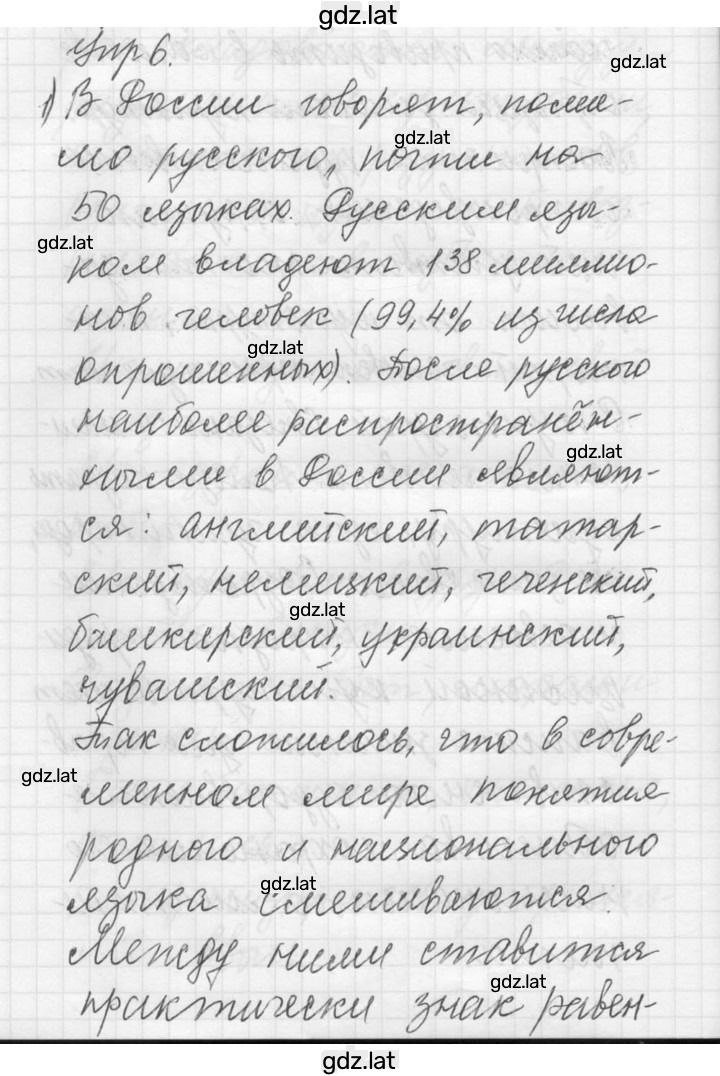 gdz.lat
Упр 6.
gdz.lat
1) В России говорят, поми-
gdz.lat
мо русского, почти на
50 языках. Русским язы-
gdz.lat
ком владеют 138 миллио-
нов человек (99,4% из числа
gdz.lat
опрошенных). После русского
наиболее распространён-
gdz.lat
ными в России являют-
ся: английский, татар-
ский, немецкий, чеченский,
gdz.lat
башкирский, украинский,
чувашский.
Так сложилось, что в совре-
gdz.lat
менном мире понятия
родного и национального
gdz.lat
языка смешиваются.
Между ними ставится
gdz.lat
практически знак равен-
gdz.lat